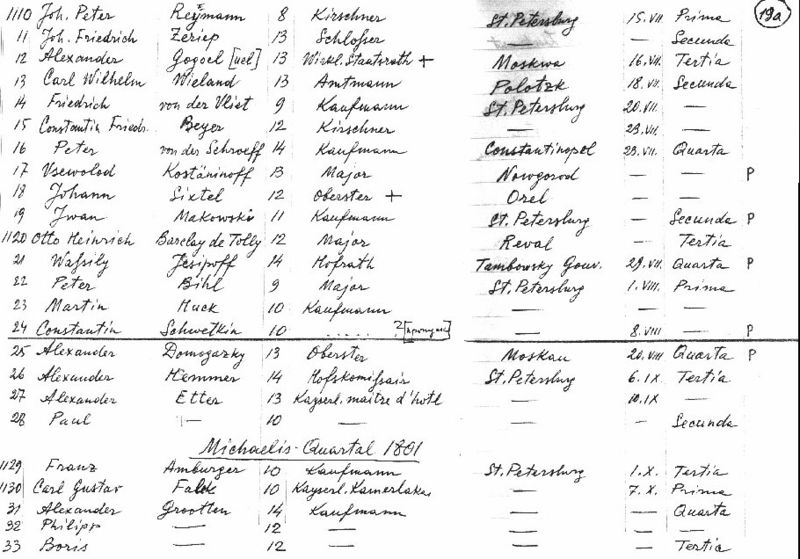 1110 Joh. Peter Reymann 8 Kirschner St. Petersburg 15.VII. Prima 19a
11 Joh. Friedrich Zeriep 13 Schlosser — — Secunda
12 Alexander Gogoel [uel] 13 Wirkl. Staatsrath + Moskwa 16.VII. Tertia
13 Carl Wilhelm Wieland 13 Amtmann Polotzk 18.VII. Secunda
14 Friedrich von der Vliet 9 Kaufmann St. Petersburg 20.VII. —
15 Constantin Friedr. Beyer 12 Kirschner — 23.VII. —
16 Peter von der Schroeff 14 Kaufmann Constantinopel 23.VII. Quarta
17 Vsewolod Kostäninoff 13 Major Nowgorod — — P
18 Johann Sixtel 12 Oberster + Orel — —
19 Iwan Makowski 11 Kaufmann St. Petersburg — Secunda P
1120 Otto Heinrich Barclay de Tolly 12 Major Reval — Tertia
21 Wassily Jesipoff 14 Hofrath Tambowsky Gouv. 29.VII. Quarta P
22 Peter Bihl 9 Major St. Petersburg 1.VIII. Prima
23 Martin Huck 10 Kaufmann — — —
24 Constantin Schwetkin 10 ..... ? — 8.VIII — P
25 Alexander Domogazky 13 Oberster Moskau 20.VIII Quarta P
26 Alexander Hemmer 14 Hofskomissair St. Petersburg 6.IX. Tertia
27 Alexander Etter 13 Kayserl. maitre d'hotl — 10.IX —
28 Paul —"— 10 — — — Secunda
Michaelis-Quartal 1801
1129 Franz Amburger 10 Kaufmann St. Petersburg 1.X. Tertia
1130 Carl Gustav Falck 10 Kayserl. Kamerlakai — 7.X. Prima
31 Alexander Grootten 14 Kaufmann — — Quarta
32 Philipp — 12 — — — —
33 Boris — 12 — — — Tertia